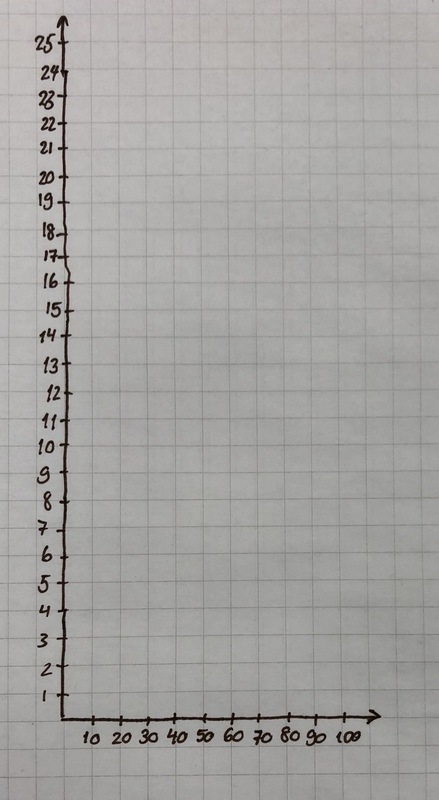 25
24
23
22
21
20
19
18
17
16
15
14
13
12
11
10
9
8
7
6
5
4
3
2
1
10 20 30 40 50 60 70 80 90 100